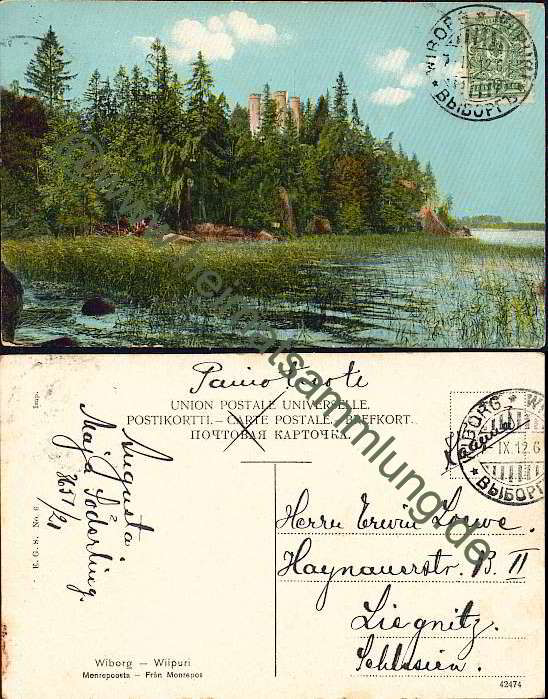 WIBORG * WIBORG
* ВЫБОРГЪ
heimatsammlung.de
Painotuote
UNION POSTALE UNIVERSELLE.
POSTIKORTTI. – CARTE POSTALE. – BREFKORT.
ПОЧТОВАЯ КАРТОЧКА.
IX.12.6
* ВЫБОРГЪ
Imp.
E. G. S. No. 6
Augusta
Maja Söderling.
Herrn Erwin Loewe.
Haynauerstr. 13. II
Liegnitz.
Schlesien.
Wiborg — Wiipuri
Monrepoosta — Från Monrepos
42474